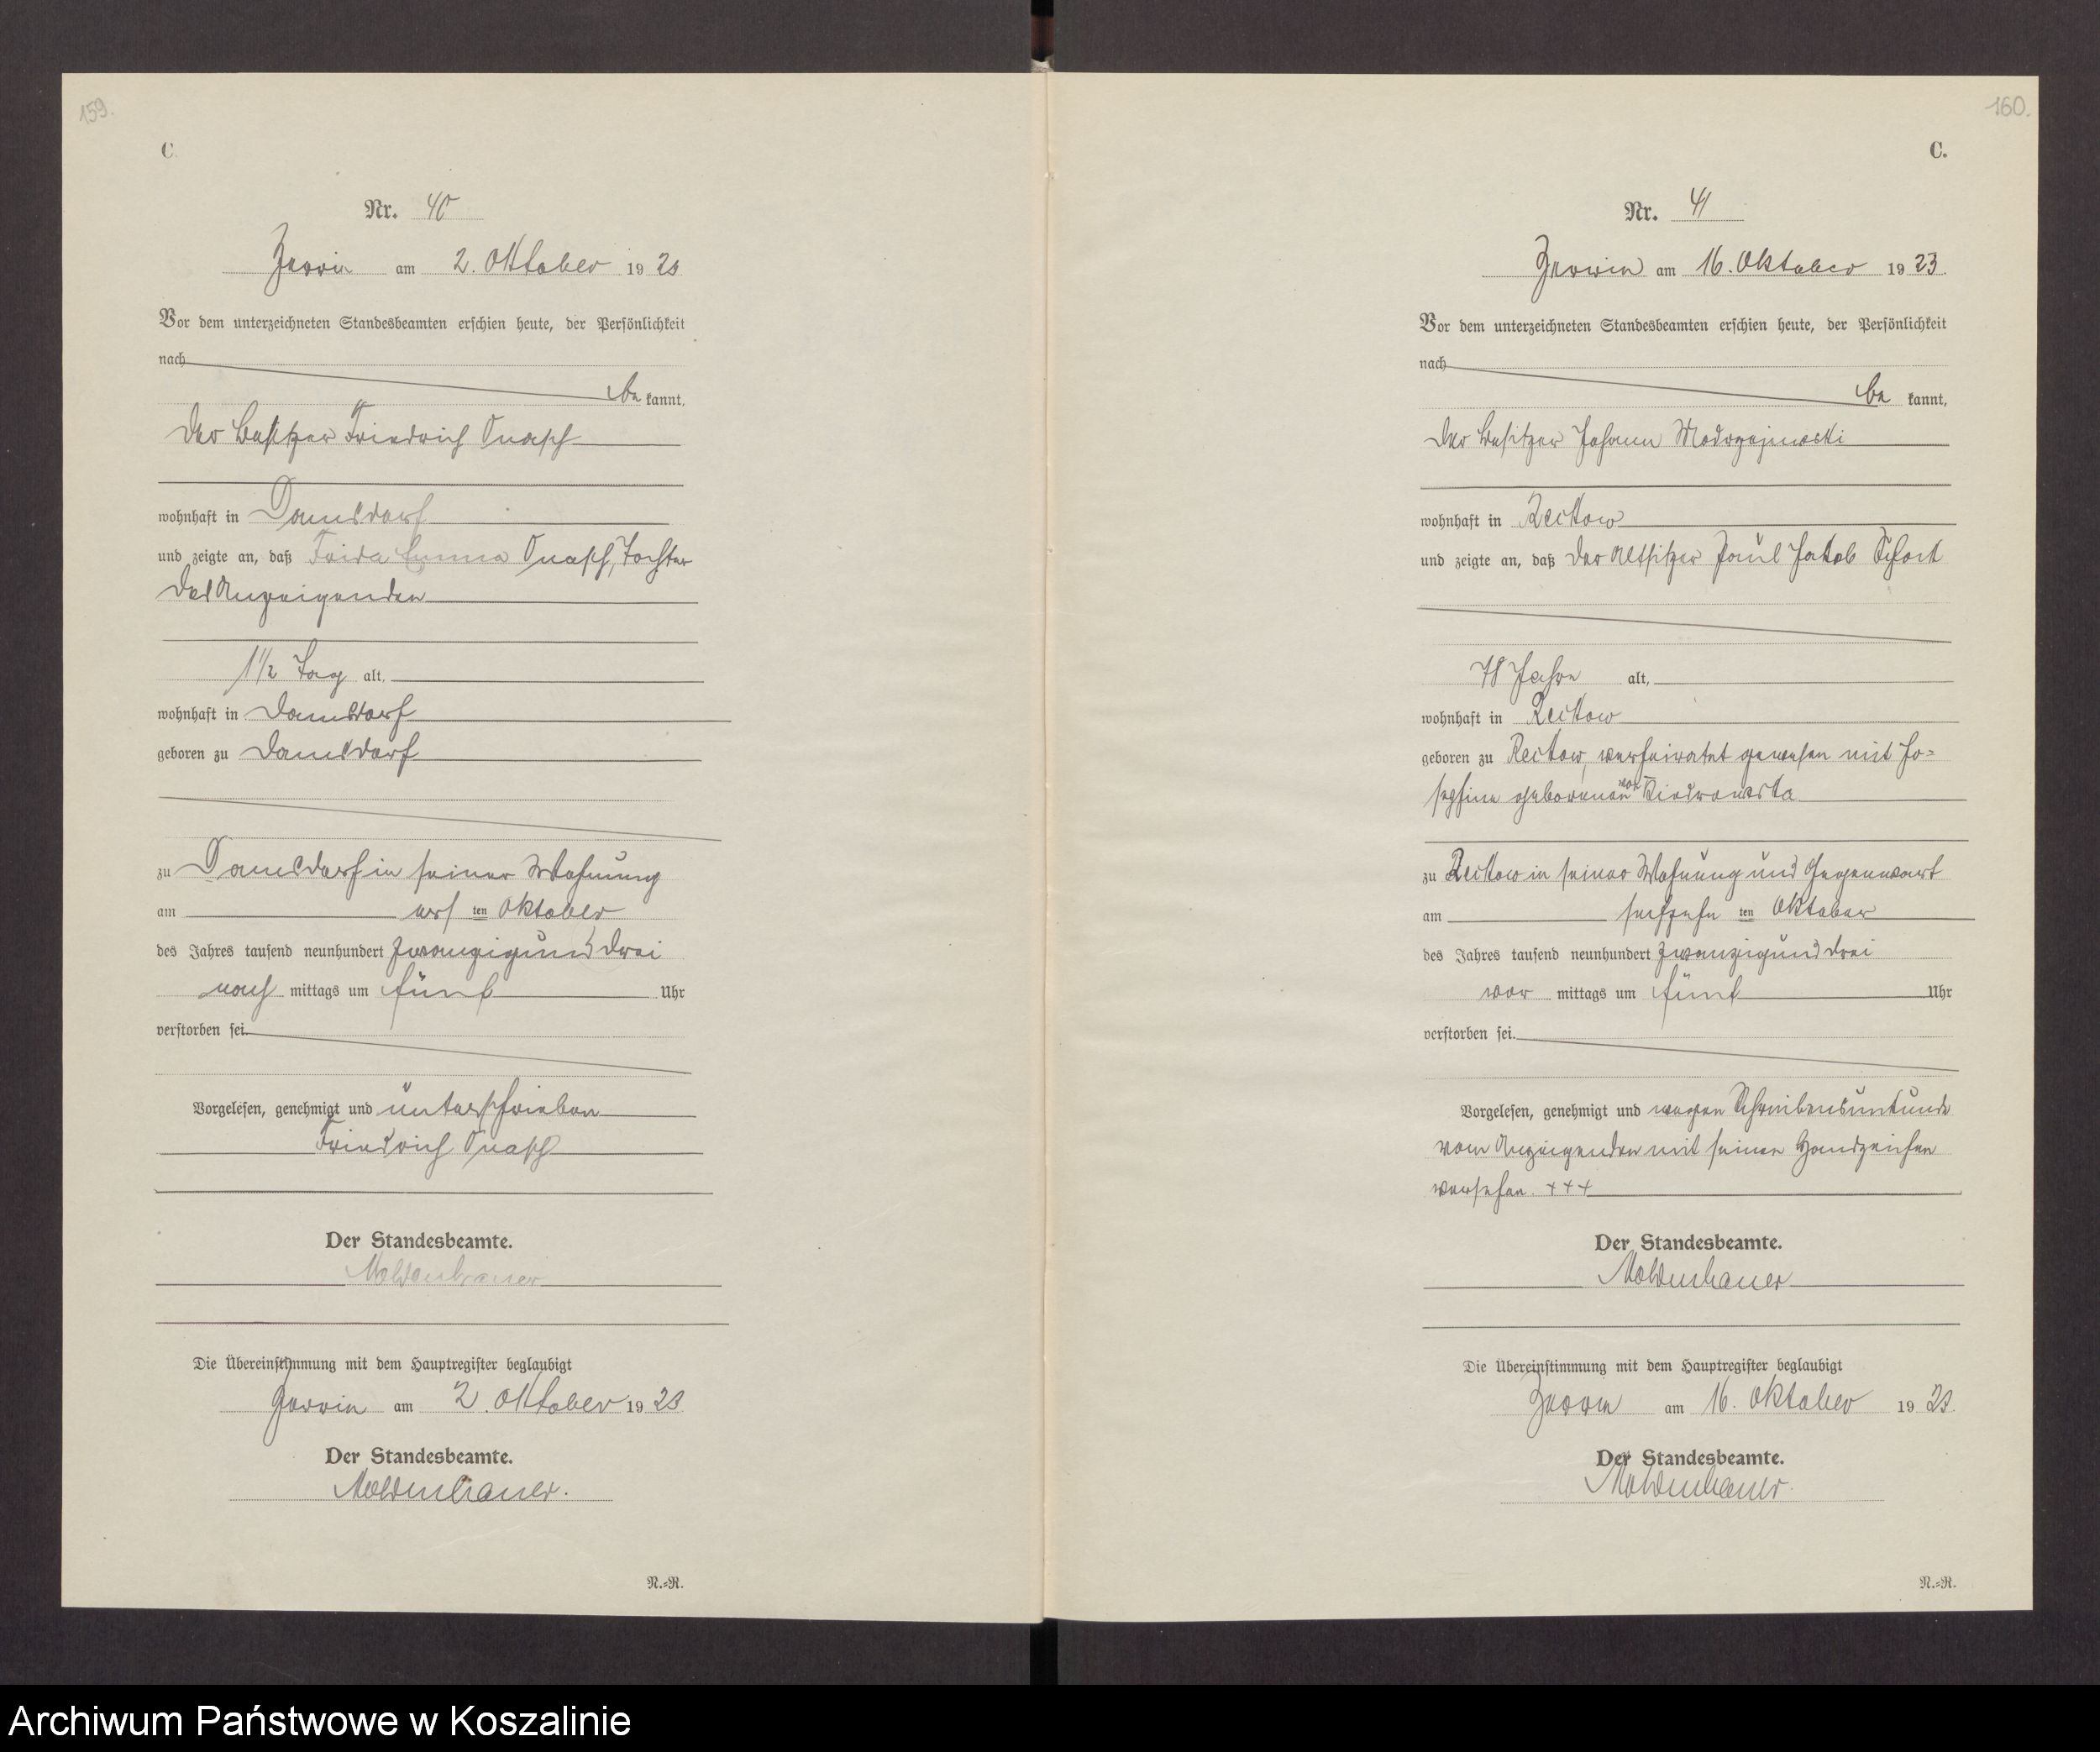 159.
C
Nr. 40
Zerrin am 2. Oktober 1923
Vor dem unterzeichneten Standesbeamten erschien heute, der Persönlichkeit
nach
be kannt,
der Besitzer Friedrich
wohnhaft in Damsdorf
und zeigte an, daß Frida Emma Tochter
des Anzeigenden
1 1/2 Tag alt,
wohnhaft in Damsdorf
geboren zu Damsdorf
zu Damsdorf in seiner Wohnung
am ersten Oktober
des Jahres tausend neunhundert zwanzigund drei
nach mittags um fünf Uhr
verstorben sei.
Vorgelesen, genehmigt und unterschrieben
Friedrich
Der Standesbeamte.
Moldenhauer
Die Übereinstimmung mit dem Hauptregister beglaubigt
Zerrin am 2. Oktober 1923
Der Standesbeamte.
Moldenhauer.
N.=R.
160.
C.
Nr. 41
Zerrin am 16. Oktober 1923.
Vor dem unterzeichneten Standesbeamten erschien heute, der Persönlichkeit
nach
be kannt,
der Besitzer Johann Modrzejewski
wohnhaft in Reckow
und zeigte an, daß der Altsitzer Paul Jakob
78 Jahre alt,
wohnhaft in Reckow
geboren zu Reckow, verheiratet gewesen mit Jo=
sephine geborenen von
zu Reckow in seiner Wohnung und Gegenwart
am sechzehnten Oktober
des Jahres tausend neunhundert zwanzigund drei
vor mittags um fünf Uhr
verstorben sei.
Vorgelesen, genehmigt und wegen Schreibensunkunde
vom Anzeigenden mit seinen Handzeichen
versehen. +++
Der Standesbeamte.
Moldenhauer
Die Übereinstimmung mit dem Hauptregister beglaubigt
Zerrin am 16. Oktober 1923.
Der Standesbeamte.
Moldenhauer.
N.=R.
Archiwum Państwowe w Koszalinie